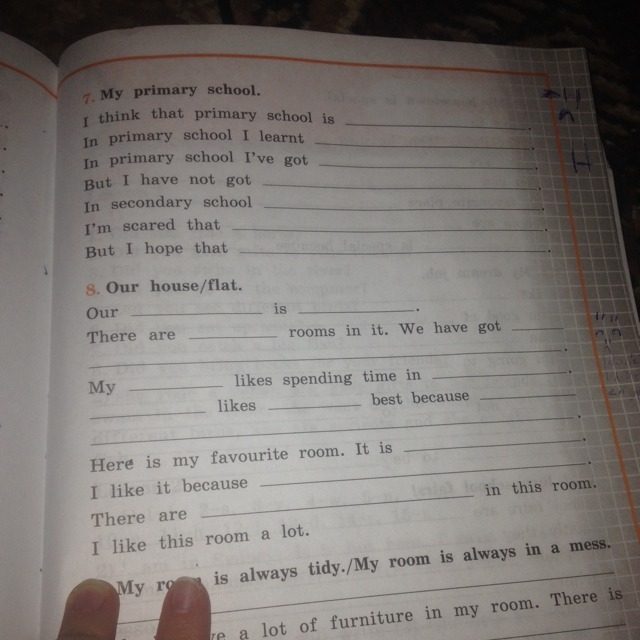 7. My primary school.
I think that primary school is ____________.
In primary school I learnt ____________.
In primary school I've got ____________.
But I have not got ____________.
In secondary school ____________.
I'm scared that ____________.
But I hope that ____________.
8. Our house/flat.
Our ____________ is ____________.
There are ____________ rooms in it. We have got ______
____________.
My ____________ likes spending time in ____________.
____________ likes ____________ best because ____________
____________.
Here is my favourite room. It is ____________.
I like it because ____________.
There are ____________ in this room.
I like this room a lot.
My room is always tidy./My room is always in a mess.
a lot of furniture in my room. There is